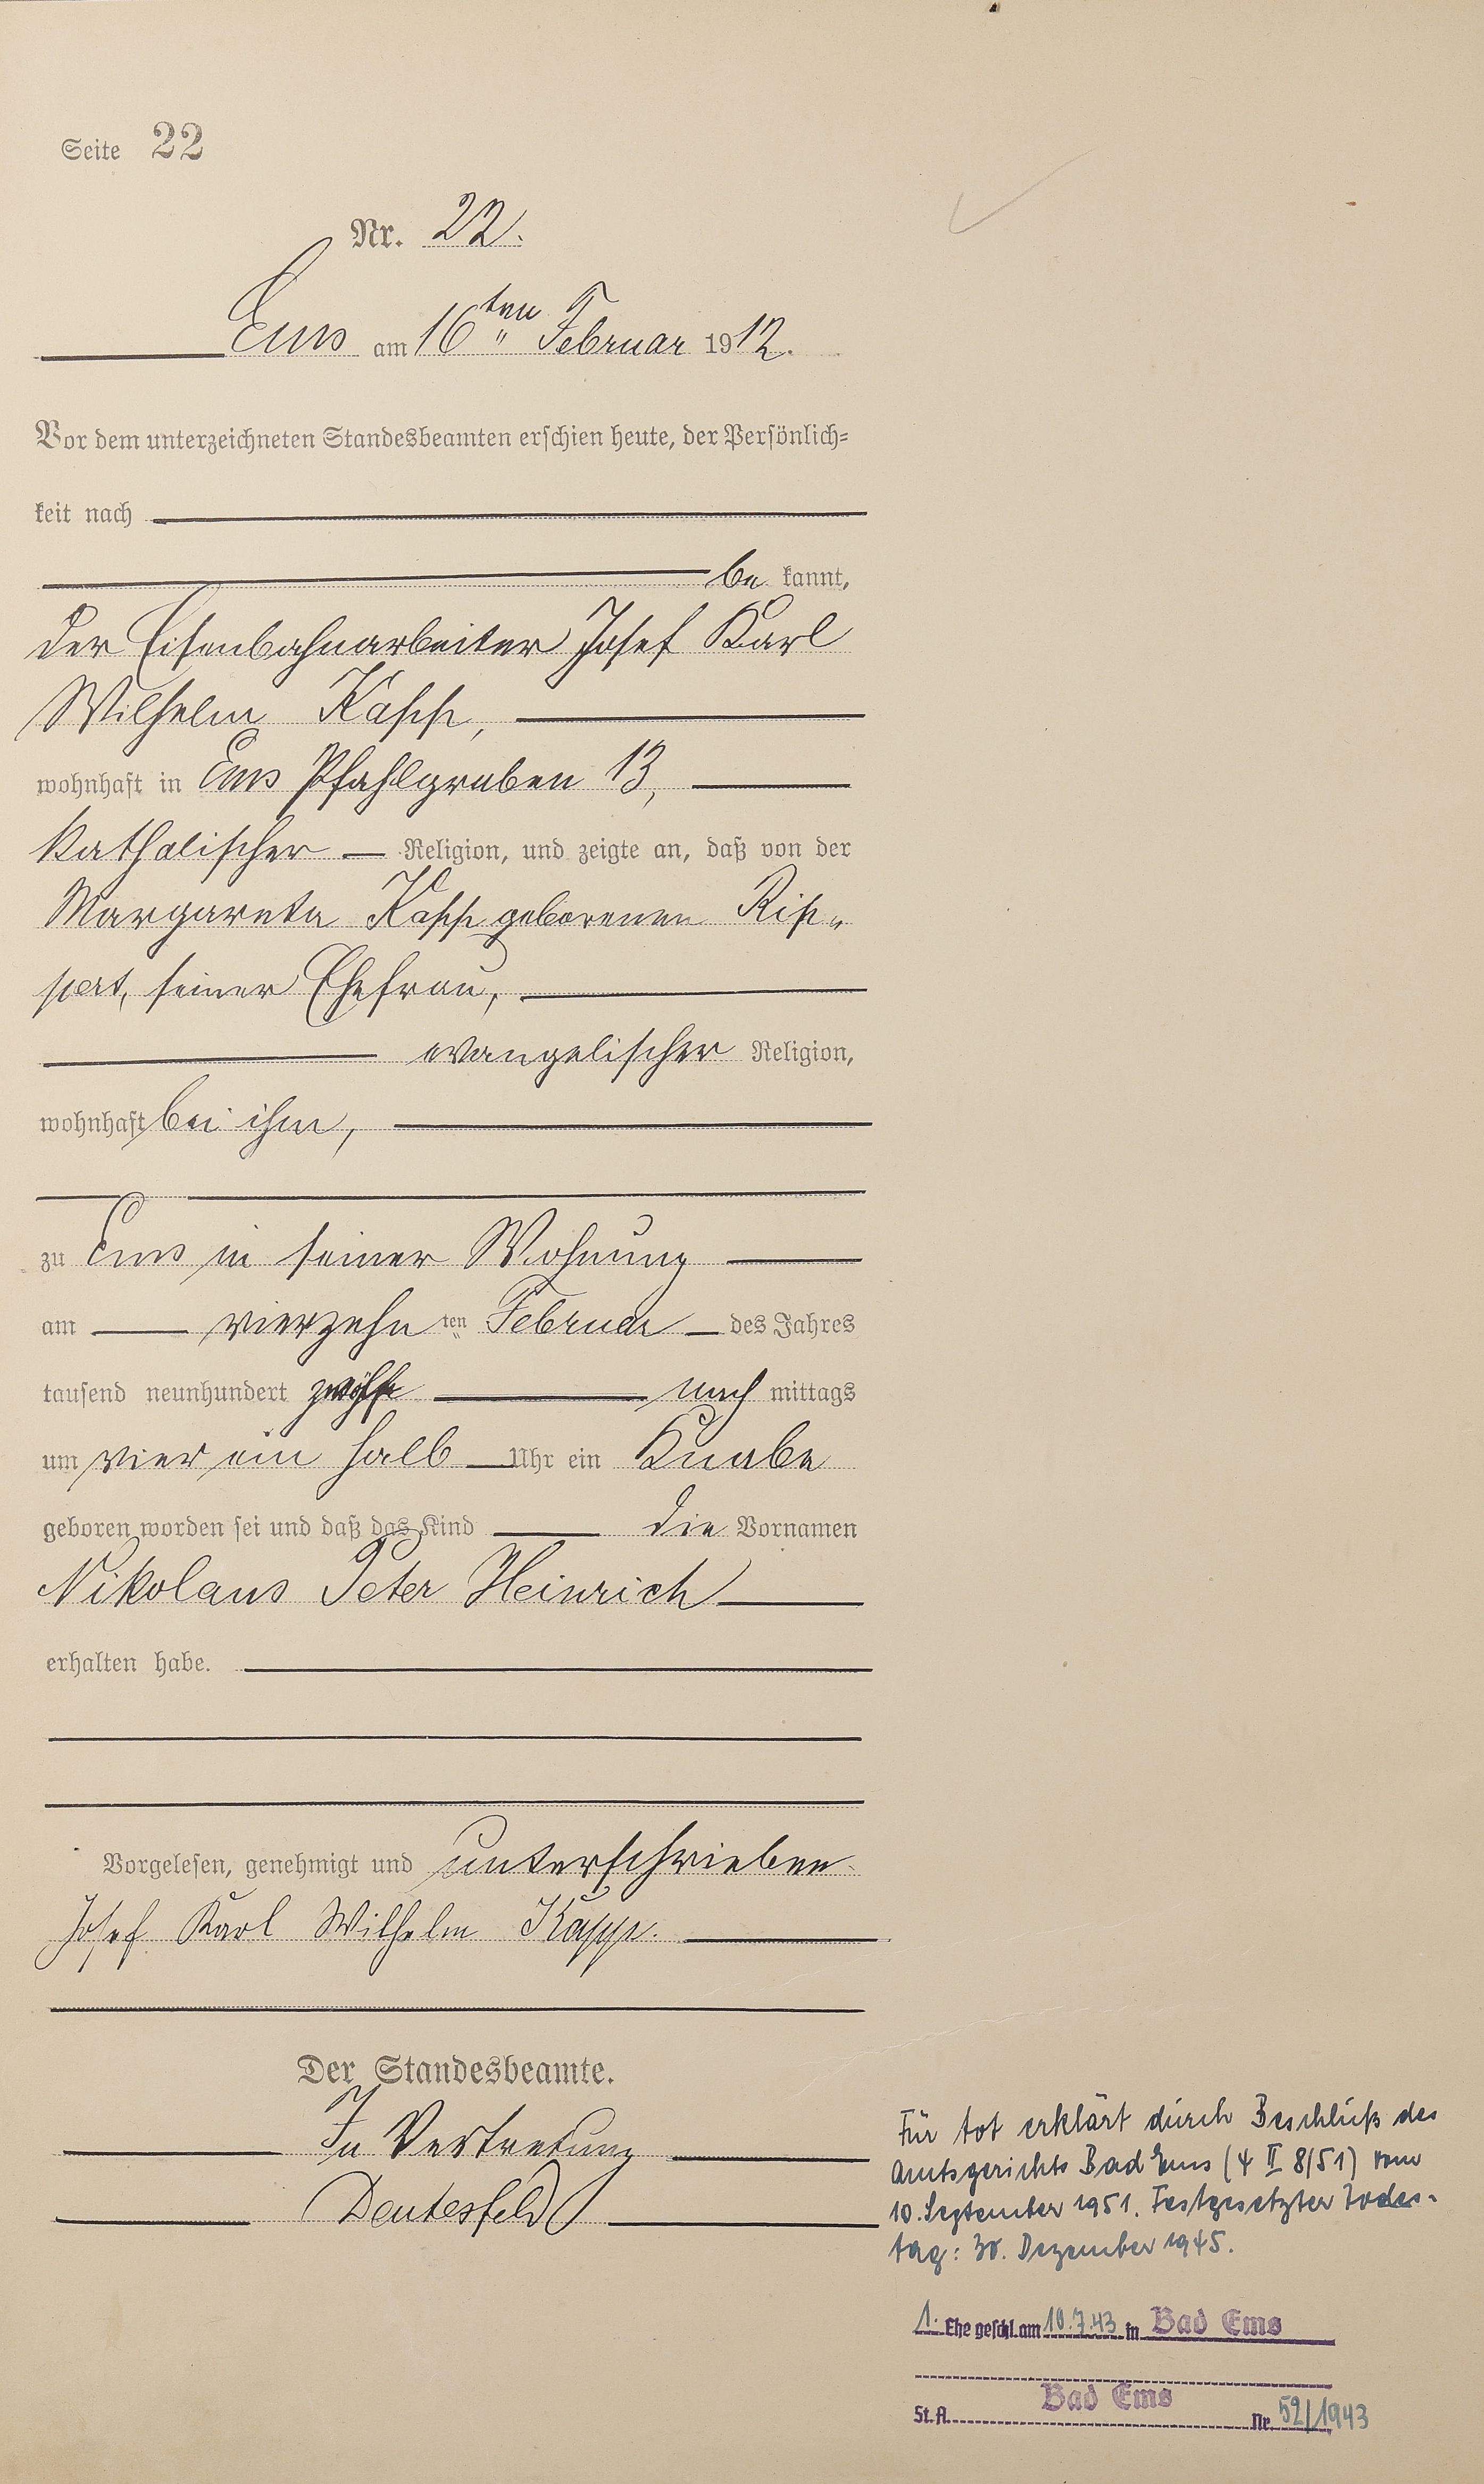 Seite 22
Nr. 22.
Ems am 16ten Februar 1912.
Vor dem unterzeichneten Standesbeamten erschien heute, der Persönlich-
keit nach
be kannt,
der Eisenbahnarbeiter Josef Karl
Wilhelm Kapp,
wohnhaft in Ems Pfahlgraben 13,
katholischer Religion, und zeigte an, daß von der
Margareta Kapp geborenen Rip-
pert, seiner Ehefrau,
evangelischer Religion,
wohnhaft bei ihm,
zu Ems in seiner Wohnung
am vierzehn ten Februar des Jahres
tausend neunhundert zwölf nach mittags
um vier ein halb Uhr ein Knabe
geboren worden sei und daß das Kind die Vornamen
Nikolaus Peter Heinrich
erhalten habe.
Vorgelesen, genehmigt und unterschrieben
Josef Karl Wilhelm Kapp.
Der Standesbeamte.
In Vertretung
Deutesfeld
Für tot erklärt durch Beschluß des
Amtsgerichts Bad Ems (4 II 8/51) vom
10. September 1951. Festgesetzter Todes-
tag: 30. Dezember 1945.
1. Ehe geschl. am 10.7.43 in Bad Ems
Bad Ems
St. A. Nr. 52/1943